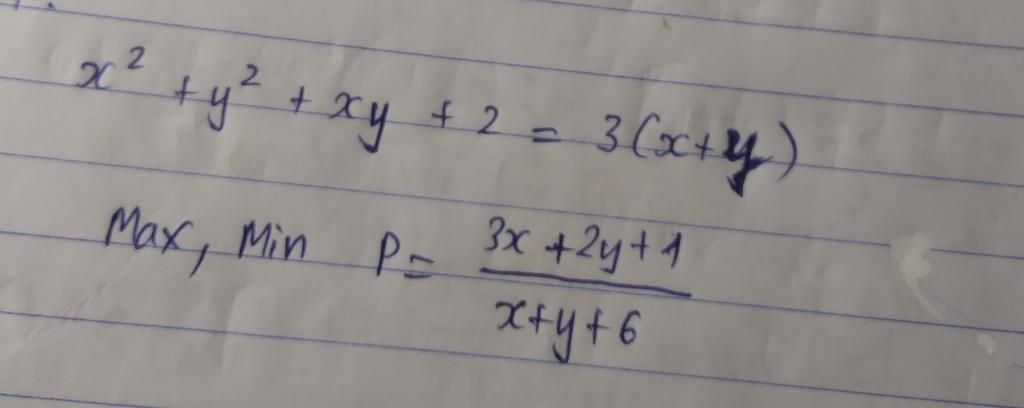 x² + y² + xy + 2 = 3(x+y)
Max, Min P = (3x+2y+1)/(x+y+6)